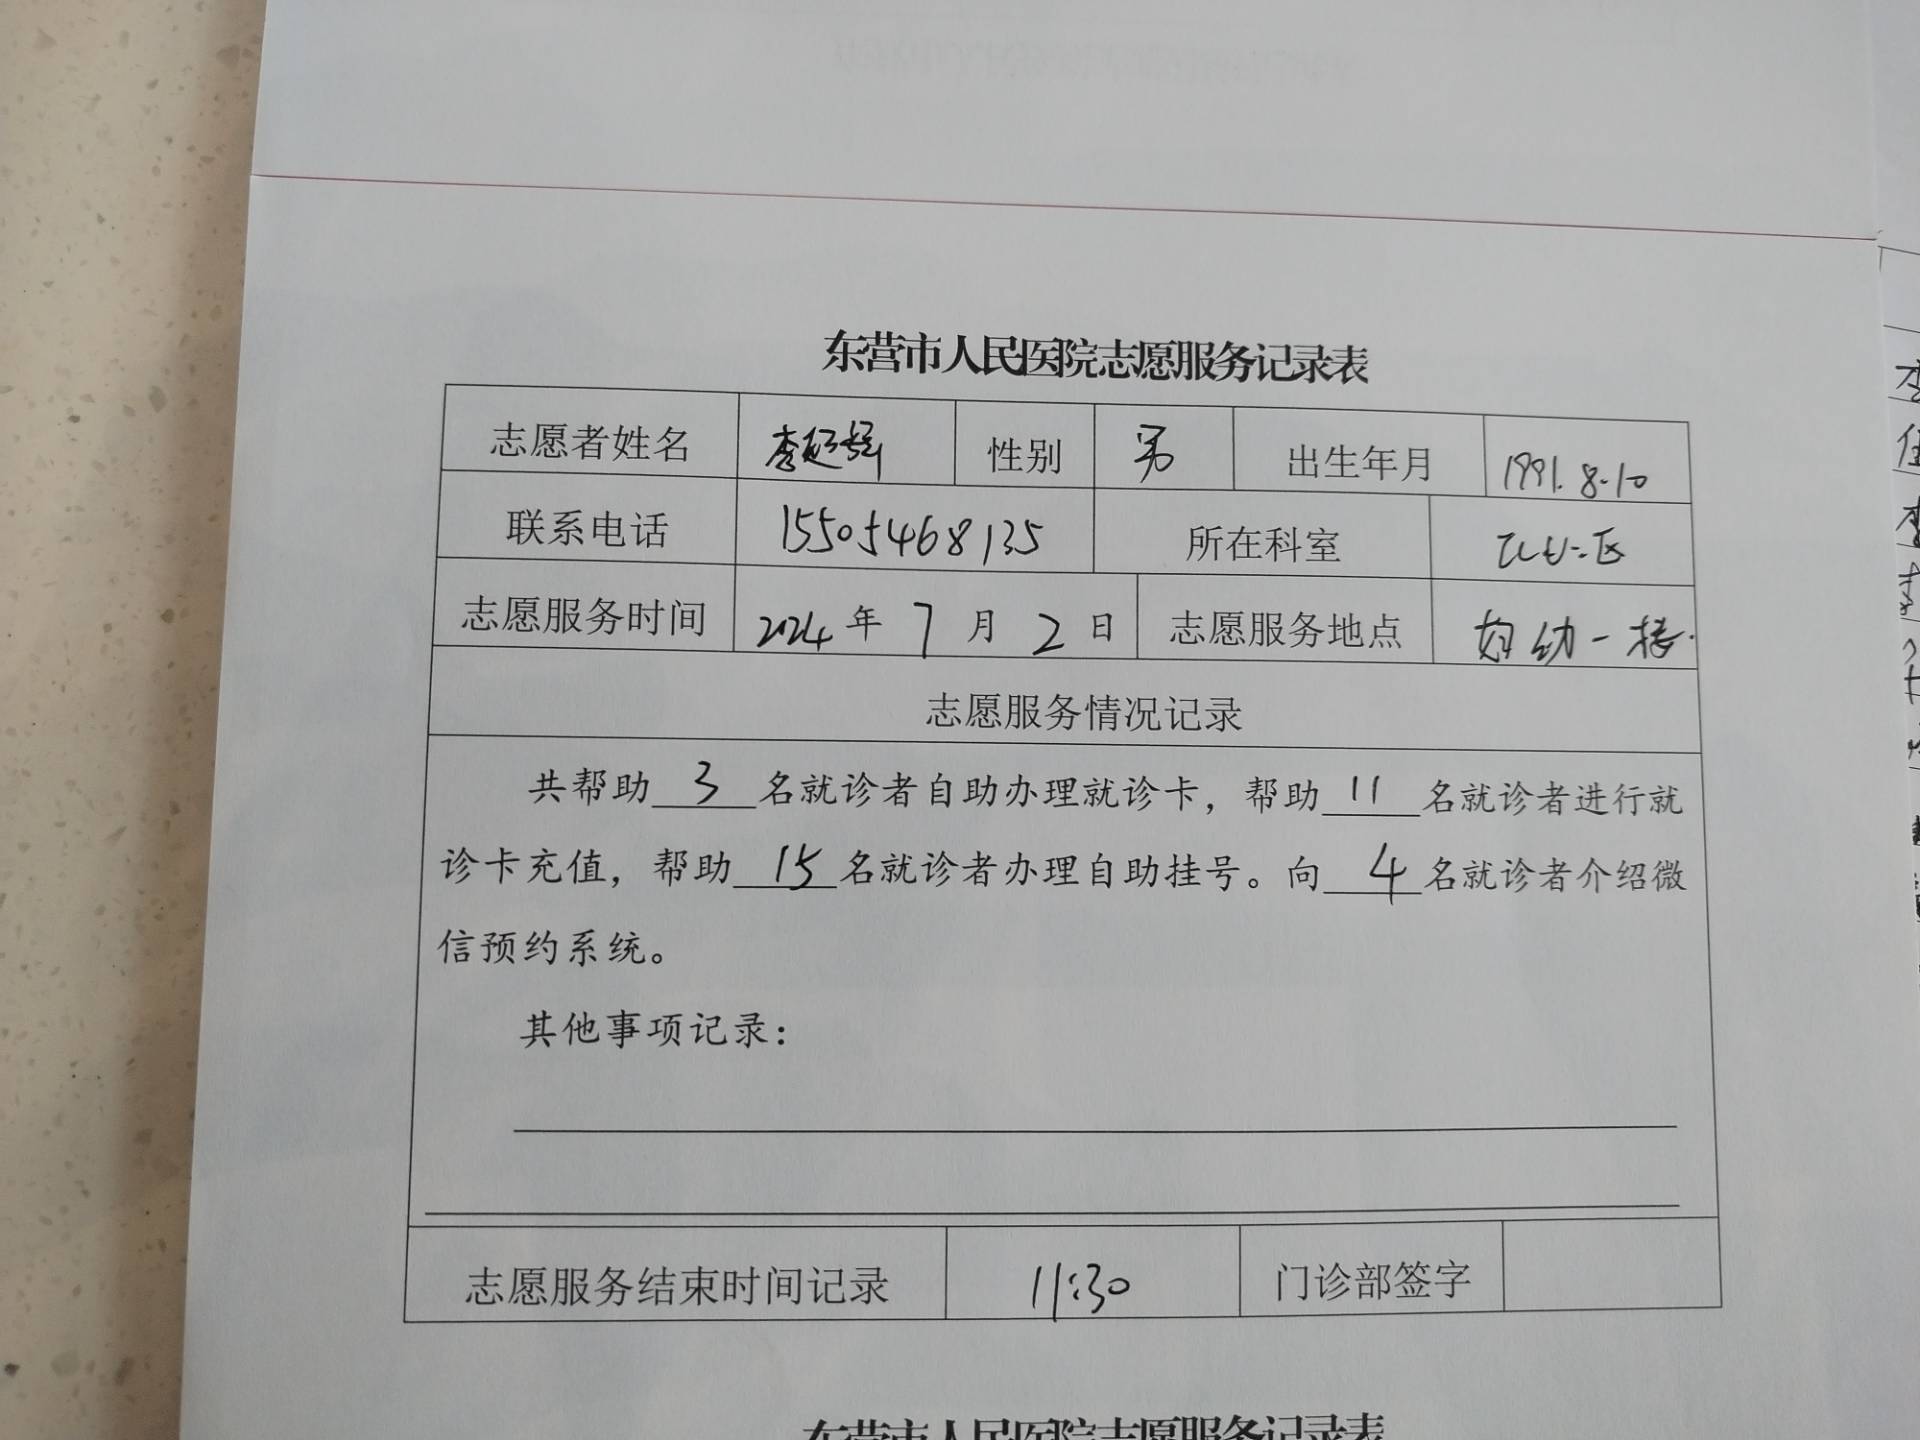 东营市人民医院志愿服务记录表
志愿者姓名 李超 性别 男 出生年月 1991.8.10
联系电话 15505468135 所在科室 二区
志愿服务时间 2024年 7月 2日 志愿服务地点 妇幼一楼
志愿服务情况记录
共帮助 3 名就诊者自助办理就诊卡，帮助 11 名就诊者进行就
诊卡充值，帮助 15 名就诊者办理自助挂号。向 4 名就诊者介绍微
信预约系统。
其他事项记录：
志愿服务结束时间记录 11:30 门诊部签字
东营市人民医院志愿服务记录表